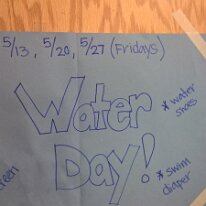 5/13, 5/20, 5/27 (Fridays)
Water
* water
shoes
Day!
* swim
diaper